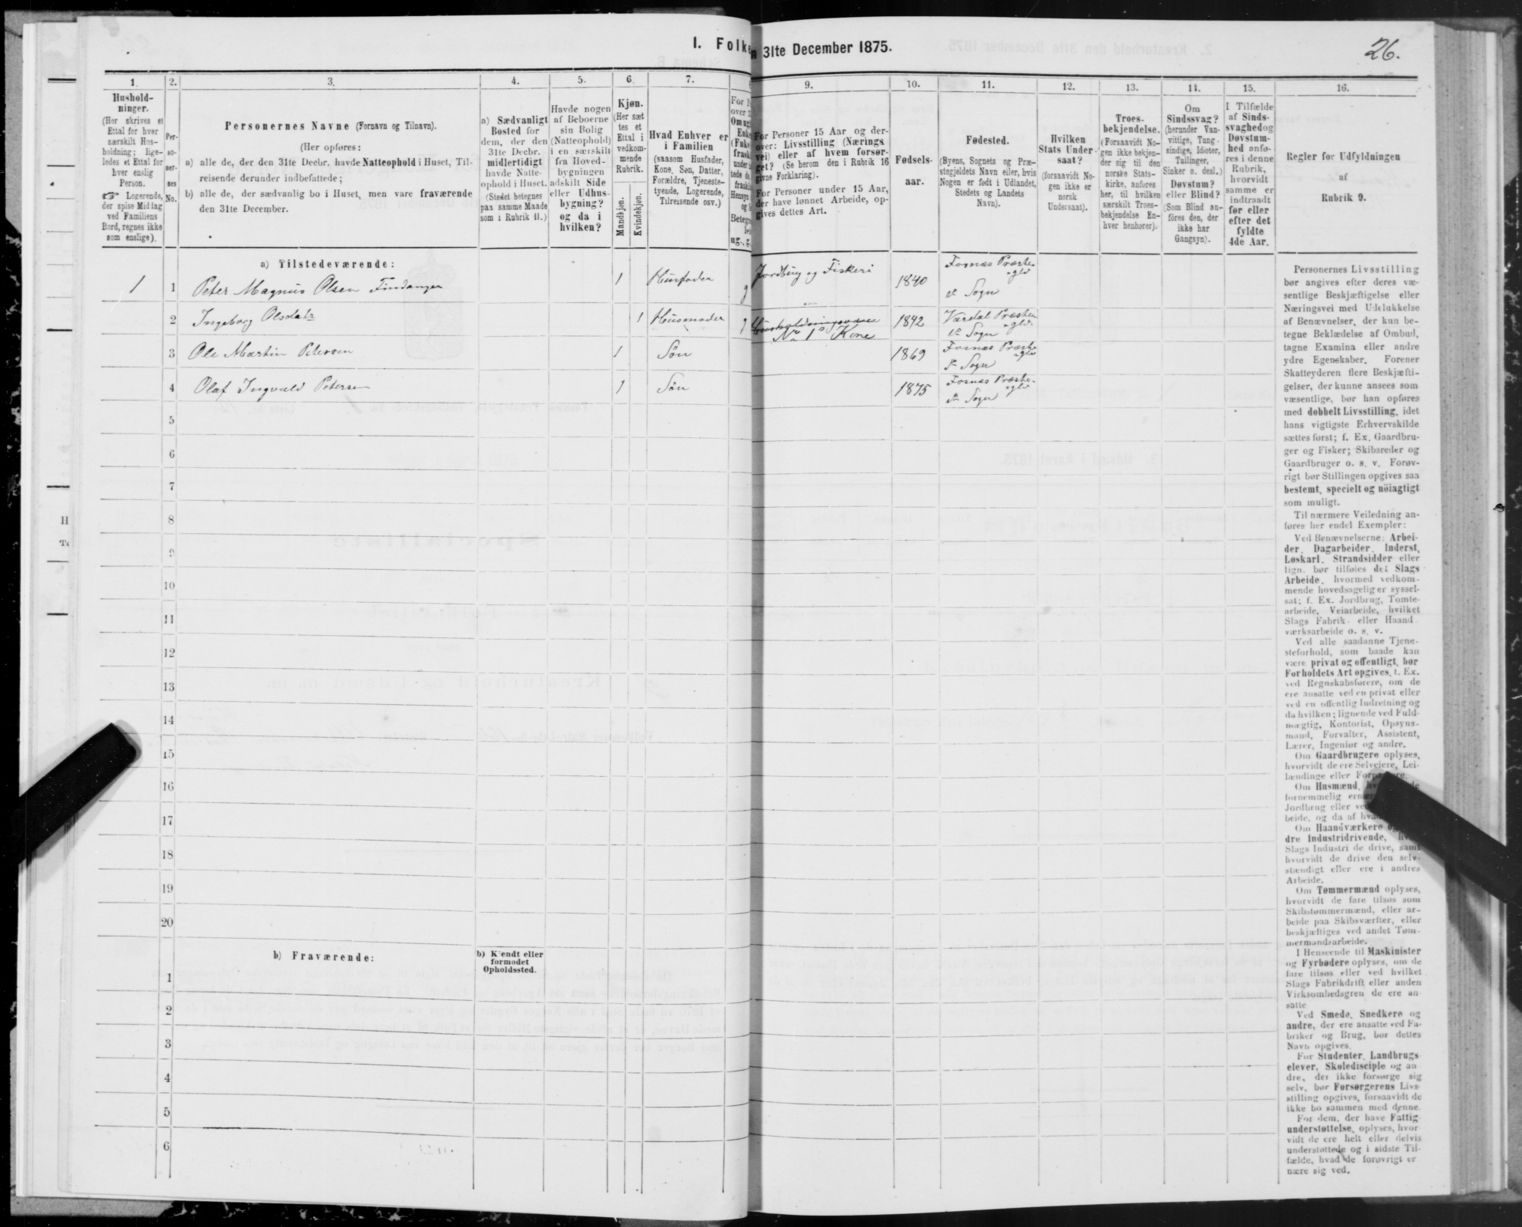 I. Folke
n 31te December 1875.
26.
1.
2.
3.
4.
5.
6.
7.
9.
10.
11.
12.
13.
14.
15.
16.
Hushold-
ninger.
(Her skrives et
Ettal for hver
særskilt Hus-
holdning; lige-
ledes et Ettal for
hver enslig
Person.
Logerende,
der spise Middag
ved Familiens
Bord, regnes ikke
som enslige).
Per-
so-
ner-
nes
No.
Personernes Navne (Fornavn og Tilnavn).
(Her opføres:
a) alle de, der den 31te Decbr. havde Natteophold i Huset, Til-
reisende derunder indbefattede;
b) alle de, der sædvanlig bo i Huset, men vare fraværende
den 31te December.
a) Sædvanligt
Bosted for
dem, der den
31te Decbr.
midlertidigt
havde Natte-
ophold i Huset.
(Stedet betegnes
paa samme Maade
som i Rubrik 11.)
Havde nogen
af Beboerne
sin Bolig
(Natteophold)
i en særskilt
fra Hoved-
bygningen
adskilt Side
eller Udhus-
bygning?
og da i
hvilken?
Kjøn.
(Her sæt
tes et
Ettal i
vedkom-
mende
Rubrik.
Mandkjøn.
Kvindekjøn.
Hvad Enhver er
i Familien
(saasom Husfader,
Kone, Søn, Datter,
Forældre, Tjeneste-
tyende, Logerende,
Tilreisende osv.)
For Personer 15 Aar og der-
over: Livsstilling (Nærings
vei) eller af hvem forsør-
get? (Se herom den i Rubrik 16
givne Forklaring).
For Personer under 15 Aar,
der have lønnet Arbeide, op-
gives dettes Art.
Fødsels-
aar.
Fødested.
(Byens, Sognets og Præ-
stegjeldets Navn eller, hvis
Nogen er født i Udlandet,
Stedets og Landets
Navn).
Hvilken
Stats Under-
saat?
(forsaavidt No-
gen ikke er
norsk
Undersaat).
Troes-
bekjendelse.
(Forsaavidt No-
gen ikke bekjen-
der sig til den
norske Stats-
kirke, anføres
her, til hvilken
særskilt Troes-
bekjendelse En-
hver henhører).
Om
Sindssvag?
(herunder Van-
vittige, Tung-
sindige, Idioter,
Tullinger,
Sinker o. desl.)
Døvstum?
eller Blind?
(Som Blind an-
føres den, der
ikke har
Gangsyn).
I Tilfælde
af Sinds-
svaghed og
Døvstum-
hed anfø-
res i denne
Rubrik,
hvorvidt
samme er
indtraadt
før eller
efter det
fyldte
4de Aar.
Regler for Udfyldningen
af
Rubrik 9.
a) Tilstedeværende:
1 1 Peter Magnus Olsen Findanger 1 Husfader g Jordbrug og Fiskeri 1840 Fosnæs Præste-
gld
d° Sogn
2 Ingeborg Olsdatr 1 Husmoder g
N° 1s Kone 1842 Værdal Præste-
gld.
d° Sogn
3 Ole Martin Petersen 1 Søn 1869 Fosnæs Præste-
gld
d° Sogn
4 Olaf Ingvald Petersen 1 Søn 1875 Fosnæs Præste-
gld
d° Sogn
5
6
7
8
9
10
11
12
13
14
15
16
17
18
19
20
b) Fraværende:
b) Kjendt eller
formodet
Opholdssted.
1
2
3
4
5
6
Personernes Livsstilling
bør angives efter deres væ-
sentlige Beskjæftigelse eller
Næringsvei med Udelukkelse
af Benævnelser, der kun be-
tegne Beklædelse af Ombud,
tagne Examina eller andre
ydre Egenskaber. Forener
Skatteyderen flere Beskjæfti-
gelser, der kunne ansees som
væsentlige, bør han opføres
med dobbelt Livsstilling, idet
hans vigtigste Erhvervskilde
sættes først; f. Ex. Gaardbru-
ger og Fisker; Skibsreder og
Gaardbruger o. s. v. Forøv-
rigt bør Stillingen opgives saa
bestemt, specielt og nøiagtigt
som muligt.
Til nærmere Veiledning an-
føres her endel Exempler:
Ved Benævnelserne: Arbei-
der, Dagarbeider, Inderst,
Løskarl, Strandsidder eller
lign. bør tilføies det Slags
Arbeide, hvormed vedkom-
mende hovedsagelig er syssel-
sat; f. Ex. Jordbrug, Tomte-
arbeide, Veiarbeide, hvilket
Slags Fabrik- eller Haand-
værksarbeide o. s. v.
Ved alle saadanne Tjene-
steforhold, som baade kan
være privat og offentligt, bør
Forholdets Art opgives, f. Ex.
ved Regnskabsførere, om de
ere ansatte ved en privat eller
ved en offentlig Indretning og
da hvilken; lignende ved Fuld-
mægtig, Kontorist, Opsyns-
mand, Forvalter, Assistent,
Lærer, Ingeniør og andre.
Om Gaardbrugere oplyses,
hvorvidt de ere Selveiere, Lei-
lændinge eller
Om Husmænd,
fornemmelig
Jordbrug eller
beide, og da af
Om Haandværkere
dre Industridrivende,
Slags Industri de drive, samt
hvorvidt de drive den selv-
stændigt eller ere i andres
Arbeide.
Om Tømmermænd oplyses,
hvorvidt de fare tilsøs som
Skibstømmermænd, eller ar-
beide paa Skibsværfter, eller
beskjæftiges ved andet Tøm-
mermandsarbeide.
I Henseende til Maskinister
og Fyrbødere oplyses, om de
fare tilsøs eller ved hvilket
Slags Fabrikdrift eller anden
Virksomhedsgren de ere an-
satte
Ved Smede, Snedkere og
andre, der ere ansatte ved Fa-
briker og Brug, bør dettes
Navn opgives.
For Studenter, Landbrugs-
elever, Skoledisciple og an-
dre, der ikke forsørge sig
selv, bør Forsørgerens Livs-
stilling opgives, forsaavidt de
ikke bo sammen med denne.
For dem, der have Fattig-
understøttelse, oplyses, hvor-
vidt de ere helt eller delvis
understøttede og i sidste Til-
fælde, hvad de forøvrigt er-
nære sig ved.